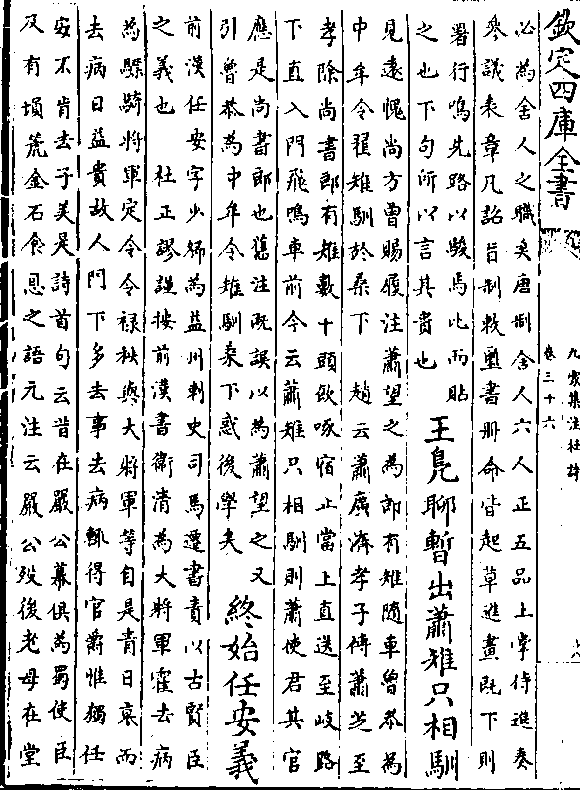 欽定四庫全書
九家集注杜詩
卷三十六
必為舍人之職矣唐制舍人六人正五品上掌侍進奏
參議表章凡詔旨制敕璽書冊命皆起草進畫既下則
署行鳴先路以駿馬比而貼
之也下句所以言其貴也
王鳧聊暫出蕭雉只相馴
見遠愧尚方曾賜履注蕭望之為郎有雉隨車曾恭為
中牟令翟雉馴於桑下 趙云蕭廣濟孝子傳蕭芝至
孝除尚書郎有雉數十頭飲啄宿止當上直送至岐路
下直入門飛鳴車前今云蕭雉只相馴則蕭使君其官
應是尚書郎也舊注既誤以為蕭望之又
引曾恭為中牟令雉馴桑下惑後學矣
終始任安義
前漢任安字少卿為益州刺史司馬遷書責以古賢臣
之義也 杜正謬謹按前漢書衛清為大將軍霍去病
為驃騎將軍定令令祿秩與大將軍等自是青日衰而
去病日益貴故人門下多去事去病輒得官爵惟獨任
安不肯去子美是詩首句云昔在嚴公幕俱為蜀使臣
及有塤篪金石食恩之語元注云嚴公歿後老母在堂